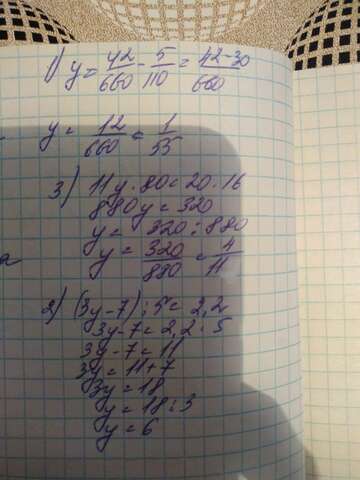 1) y = 42/660 - 5/110 = 42-30/660
y = 12/660 = 1/55
3) 11y · 80 = 20 · 16
880y = 320
y = 320 : 880
y = 320/880 = 4/11
2) (3y-7) : 5 = 2,2
3y-7 = 2,2 · 5
3y-7 = 11
3y = 11+7
3y = 18
y = 18 : 3
y = 6